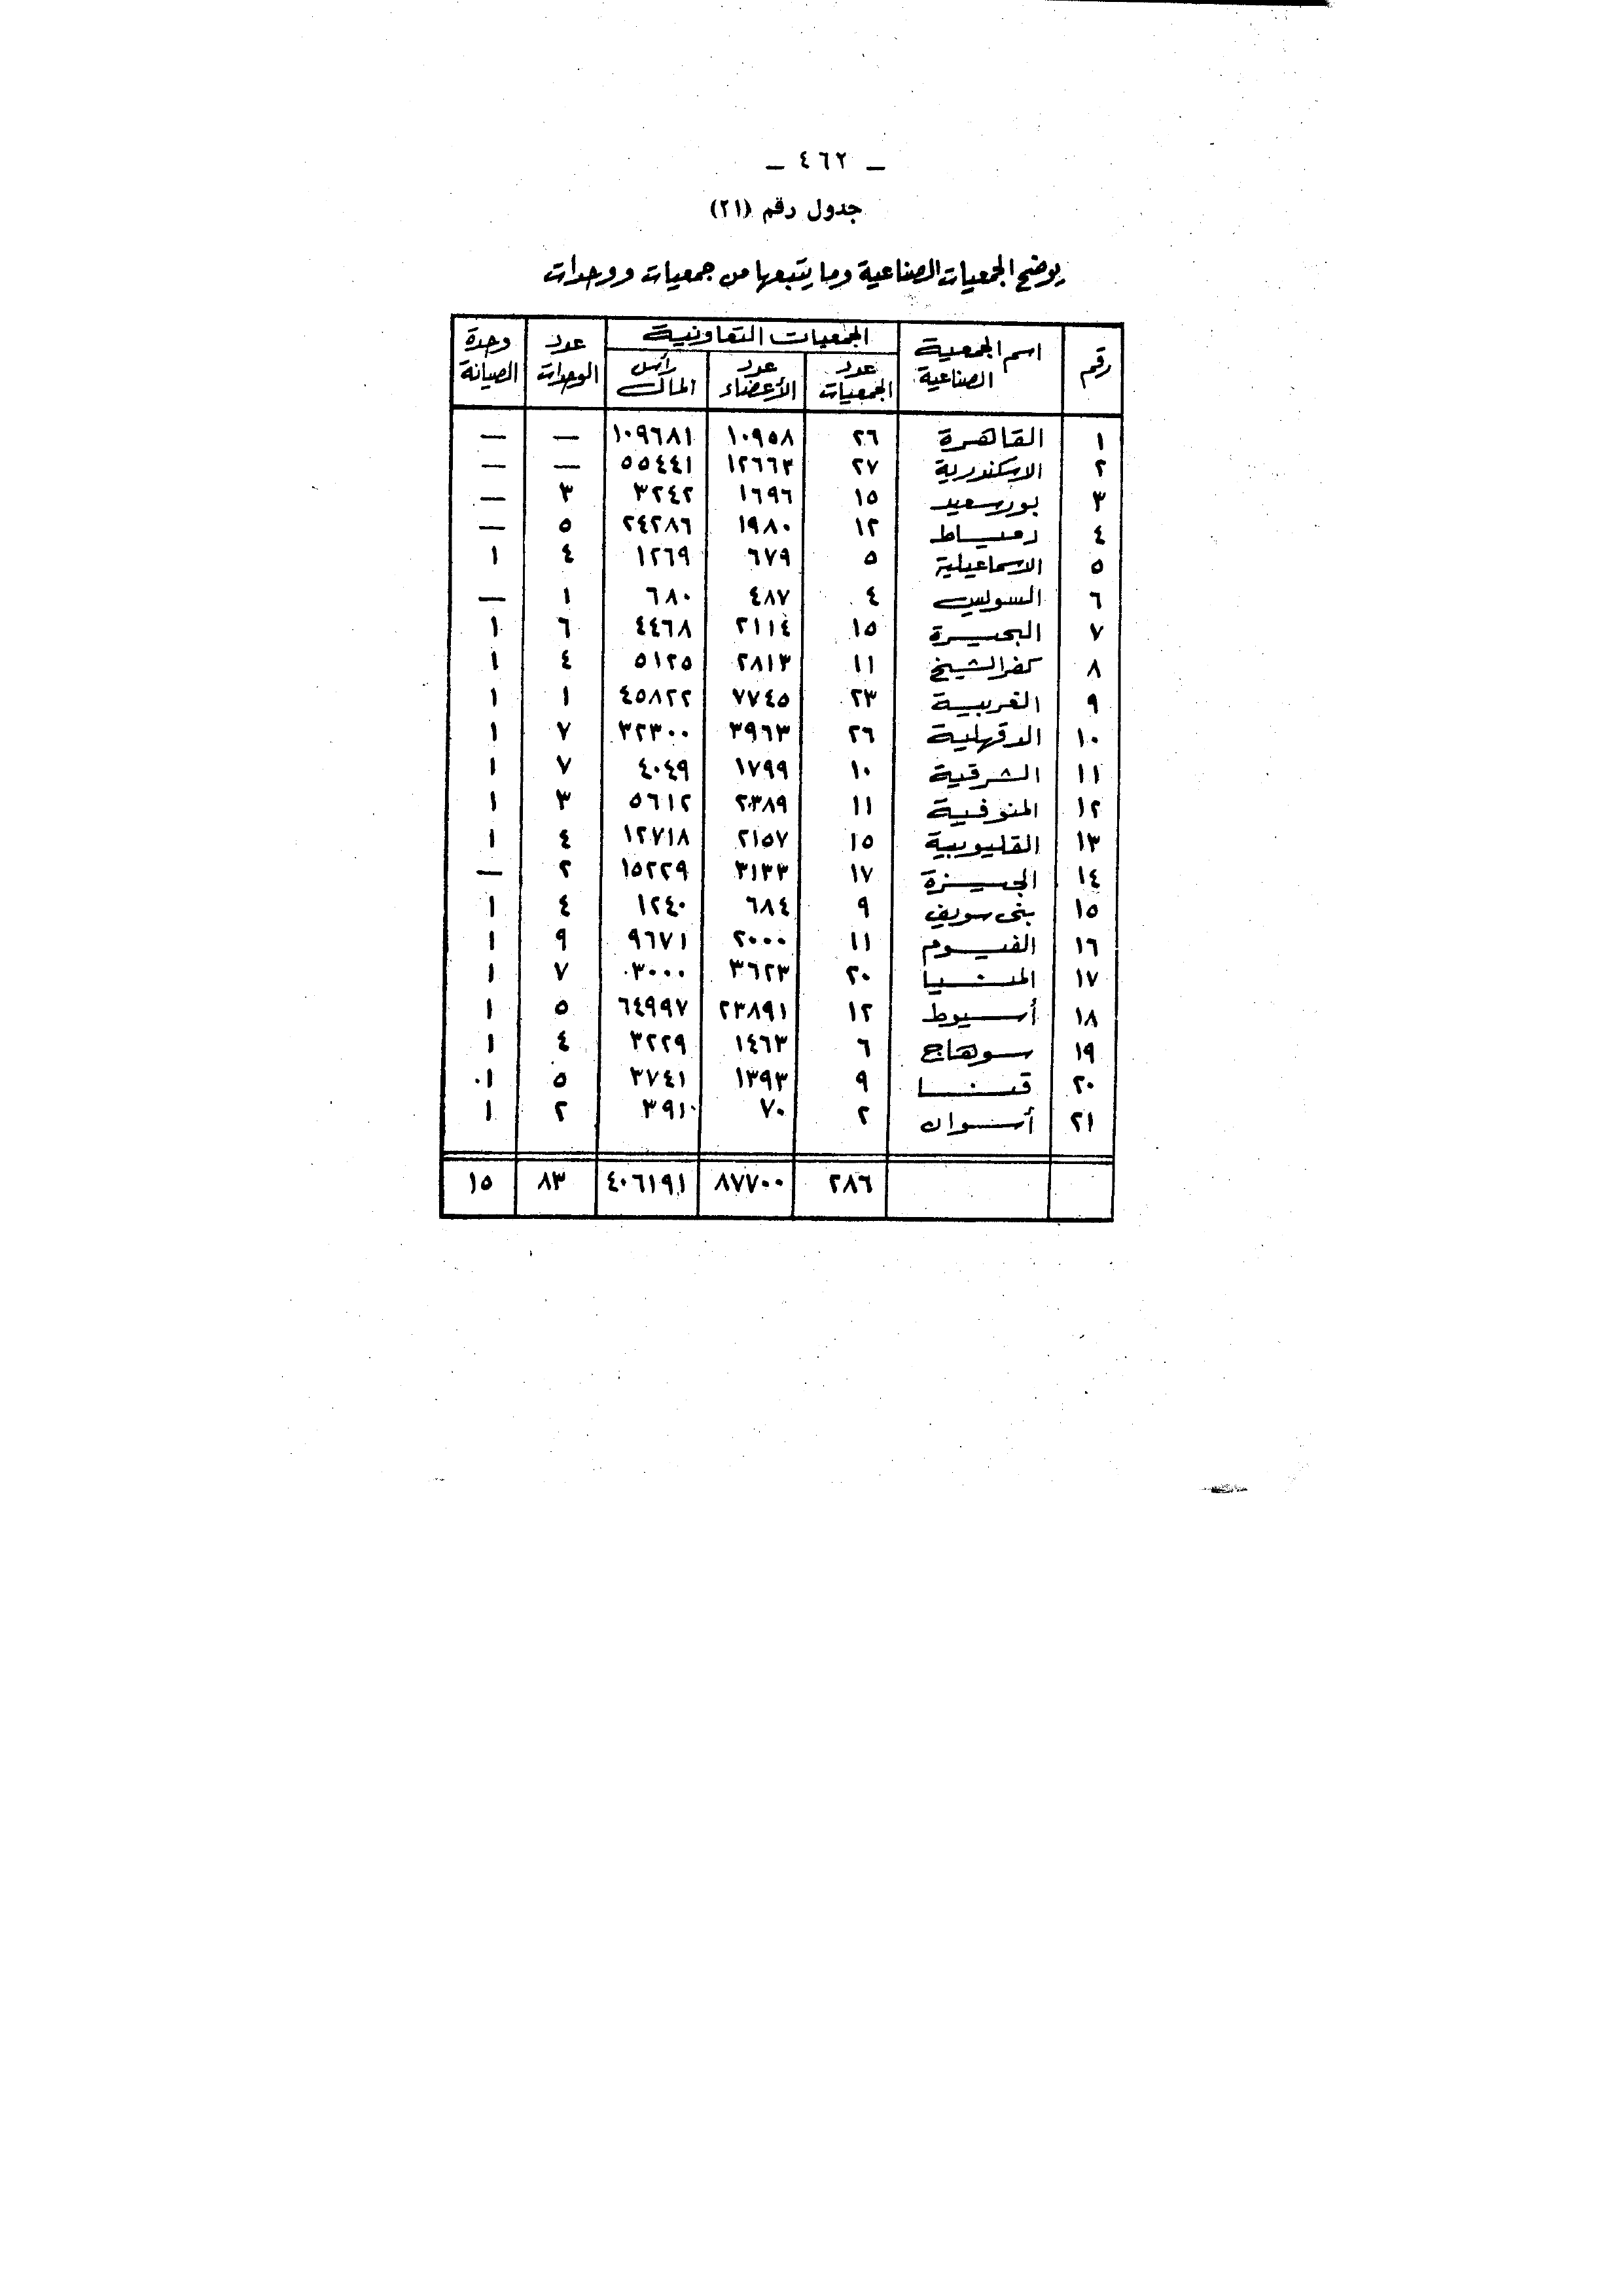 — ٤٦٢ —
جدول رقم (٢١)
يوضح الجمعيات الصناعية وما يتبعها من جمعيات ووحدات
رقم اسم الجمعية الصناعية الجمعيات التعاونية عدد الوحدات وحدة الصيانة
عدد الجمعيات عدد الأعضاء رأس المال
١ القاهرة ٢٦ ١٠٩٥٨ ١٠٩٦٨١ — —
٢ الاسكندرية ٢٧ ١٢٦٦٣ ٥٥٤٤١ — —
٣ بورسعيد ١٥ ١٦٩٦ ٣٢٤٢ ٣ —
٤ دمياط ١٢ ١٩٨٠ ٢٤٢٨٦ ٥ —
٥ الاسماعيلية ٥ ٦٧٩ ١٢٦٩ ٤ ١
٦ السويس ٤ ٤٨٧ ٦٨٠ ١ —
٧ البحيرة ١٥ ٢١١٤ ٤٤٦٨ ٦ ١
٨ كفر الشيخ ١١ ٢٨١٣ ٥١٢٥ ٤ ١
٩ الغربية ٢٣ ٧٧٤٥ ٤٥٨٢٢ ١ ١
١٠ الدقهلية ٢٦ ٣٩٦٣ ٣٢٣٠٠ ٧ ١
١١ الشرقية ١٠ ١٧٩٩ ٤٠٤٩ ٧ ١
١٢ المنوفية ١١ ٢٣٨٩ ٥٦١٢ ٣ ١
١٣ القليوبية ١٥ ٢١٥٧ ١٢٧١٨ ٤ ١
١٤ الجيزة ١٧ ٣١٣٣ ١٥٢٢٩ ٢ —
١٥ بنى سويف ٩ ٦٨٤ ١٢٤٠ ٤ ١
١٦ الفيوم ١١ ٢٠٠٠ ٩٦٧١ ٩ ١
١٧ المنيا ٢٠ ٣٦٢٣ ٣٠٠٠ ٧ ١
١٨ أسيوط ١٢ ٢٣٨٩١ ٦٤٩٩٧ ٥ ١
١٩ سوهاج ٦ ١٤٦٣ ٣٢٢٩ ٤ ١
٢٠ قنا ٩ ١٣٩٣ ٣٧٤١ ٥ ١
٢١ أسوان ٢ ٧٠ ٣٩١٠ ٢ ١
٢٨٦ ٨٧٧٠٠ ٤٠٦١٩١ ٨٣ ١٥